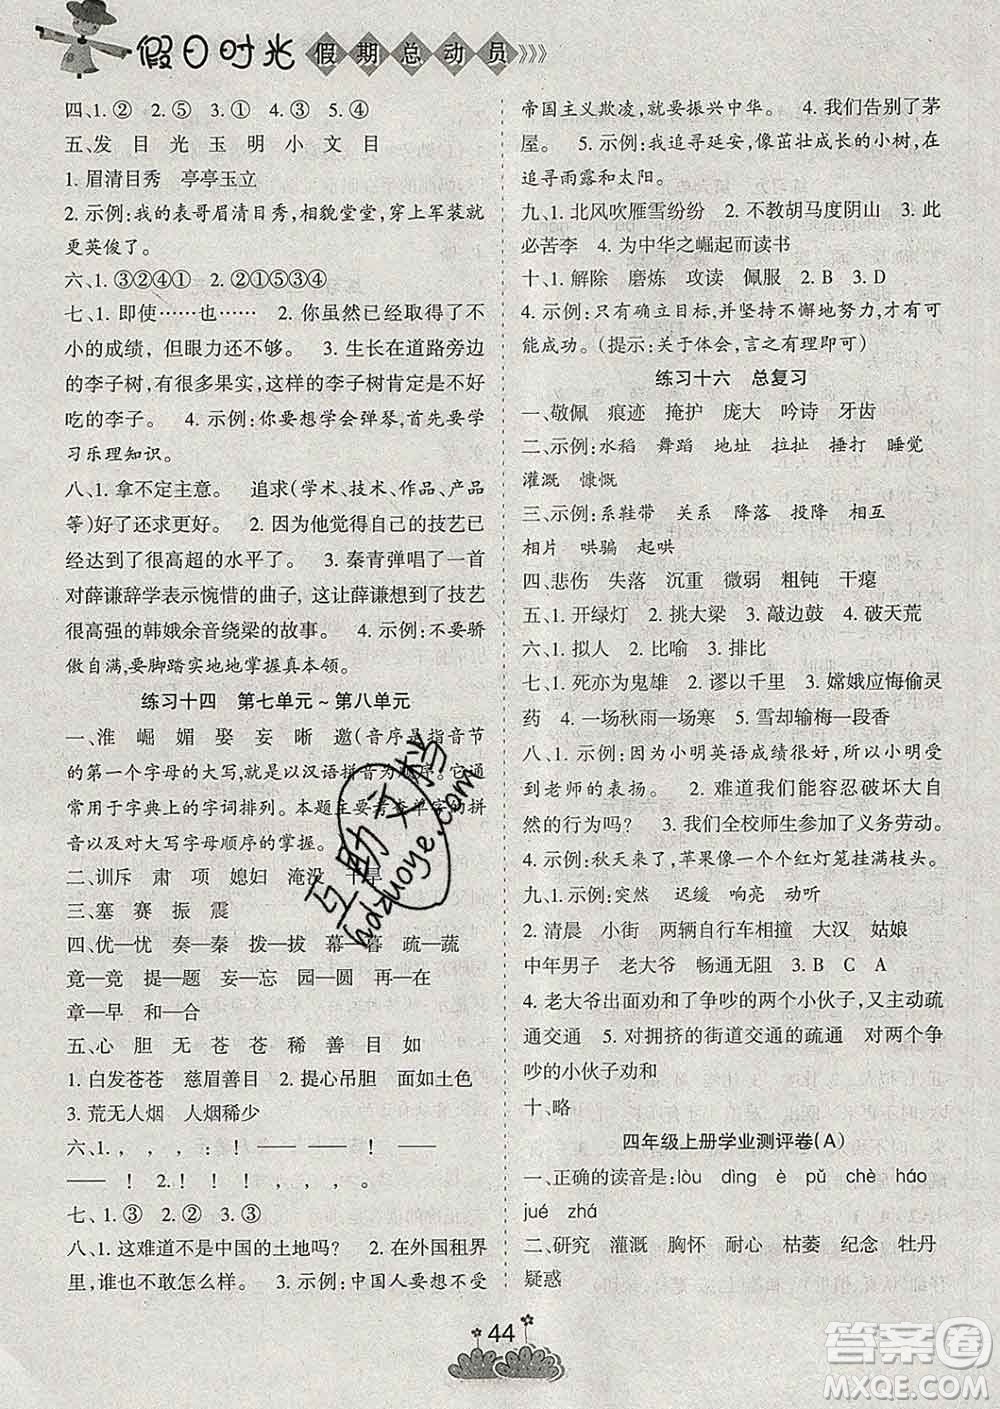 假日时光 假期总动员
四、1. ② 2. ⑤ 3. ① 4. ③ 5. ④
五、发 目 光 玉 明 小 文 目
1. 眉清目秀 亭亭玉立
2. 示例:我的表哥眉清目秀,相貌堂堂,穿上军装就
更英俊了。
六、1. ③②④① 2. ②①⑤③④
七、1. 即使……也…… 2. 你虽然已经取得了不
小的成绩，但眼力还不够。 3. 生长在道路旁边
的李子树，如果有很多李子，这样的李子树肯定是不好
吃的李子。 4. 示例:你要想学会弹琴,首先要学
习乐理知识。
八、1. 拿不定主意。 追求(学术、技术、作品、产品
等)好了还求更好。 2. 因为他觉得自己的技艺已
经达到了很高超的水平了。 3. 秦青弹唱了一首
对薛谦辞学表示惋惜的曲子，这让薛谦想到了技艺
很高强的韩娥余音绕梁的故事。 4. 示例:不要骄
傲自满,要脚踏实地地掌握真本领。
练习十四 第七单元~第八单元
一、淮 崛 媚 娶 妄 晰 邀(音序是指音节
的第一个字母的大写,是以汉语拼音为顺序。它通
常用于字典上的字词排列。本题主要考查单字的拼
音以及对大写字母顺序的掌握。)
二、训斥 肃 项 媳妇 淹没 干旱
三、塞 赛 振 震
四、优—忧 奏—秦 拨—拔 幕—暮 疏—蔬
竟—竞 提—题 妄—忘 园—圆 再—在
章—早 和—合
五、心 胆 无 苍 苍 稀 善 目 如
1. 白发苍苍 慈眉善目 2. 提心吊胆 面如土色
3. 荒无人烟 人烟稀少
六、1. ， ， ， ！ ——
—— ！ 2. ！ ！ ， ， ， 。
七、1. ③ 2. ② 3. ③
八、1. 这难道不是中国的土地吗？ 2. 在外国租界
里,谁也不敢怎么样。 3. 示例:中国人要想不受
帝国主义欺凌,就要振兴中华。 4. 我们告别了茅
屋。 5. 示例:我追寻延安,像茁壮成长的小树,在
追寻雨露和太阳。
九、1. 北风吹雁雪纷纷 2. 不教胡马度阴山 3. 此
必苦李 4. 为中华之崛起而读书
十、1. 解除 磨炼 攻读 佩服 2. B 3. D
4. 示例:只有确立目标,并坚持不懈地努力,才有可
能成功。(提示:关于体会,言之有理即可)
练习十六 总复习
一、敬佩 痕迹 掩护 庞大 吟诗 牙齿
二、示例:水稻 舞蹈 地址 拉扯 捶打 睡觉
灌溉 慷慨
三、示例:系鞋带 关系 降落 投降 相互
相片 哄骗 起哄
四、悲伤 失落 沉重 微弱 粗钝 干瘪
五、1. 开绿灯 2. 挑大梁 3. 敲边鼓 4. 破天荒
六、1. 拟人 2. 比喻 3. 排比
七、1. 死亦为鬼雄 2. 谬以千里 3. 嫦娥应悔偷灵
药 4. 一场秋雨一场寒 5. 雪却输梅一段香
八、1. 示例:因为小明英语成绩很好,所以小明受
到老师的表扬。 2. 难道我们能容忍破坏大自
然的行为吗？ 3. 我们全校师生参加了义务劳动。
4. 示例:秋天来了,苹果像一个个红灯笼挂满枝头。
九、1. 示例:突然 迟缓 响亮 动听
2. 清晨 小街 两辆自行车相撞 大汉 姑娘
中年男子 老大爷 畅通无阻 3. B C A
4. 老大爷出面劝和了争吵的两个小伙子,又主动疏
通交通 5. 对拥挤的街道交通的疏通 对两个争
吵的小伙子劝和
十、略
四年级上册学业测评卷(A)
一、正确的读音是:lòu dìng è pǔ chè háo
jué zhá
二、研究 灌溉 胸怀 耐心 枯萎 纪念 牡丹
疑惑
44
互助文档
hdzuoye.com
答案圈
MXQE.COM